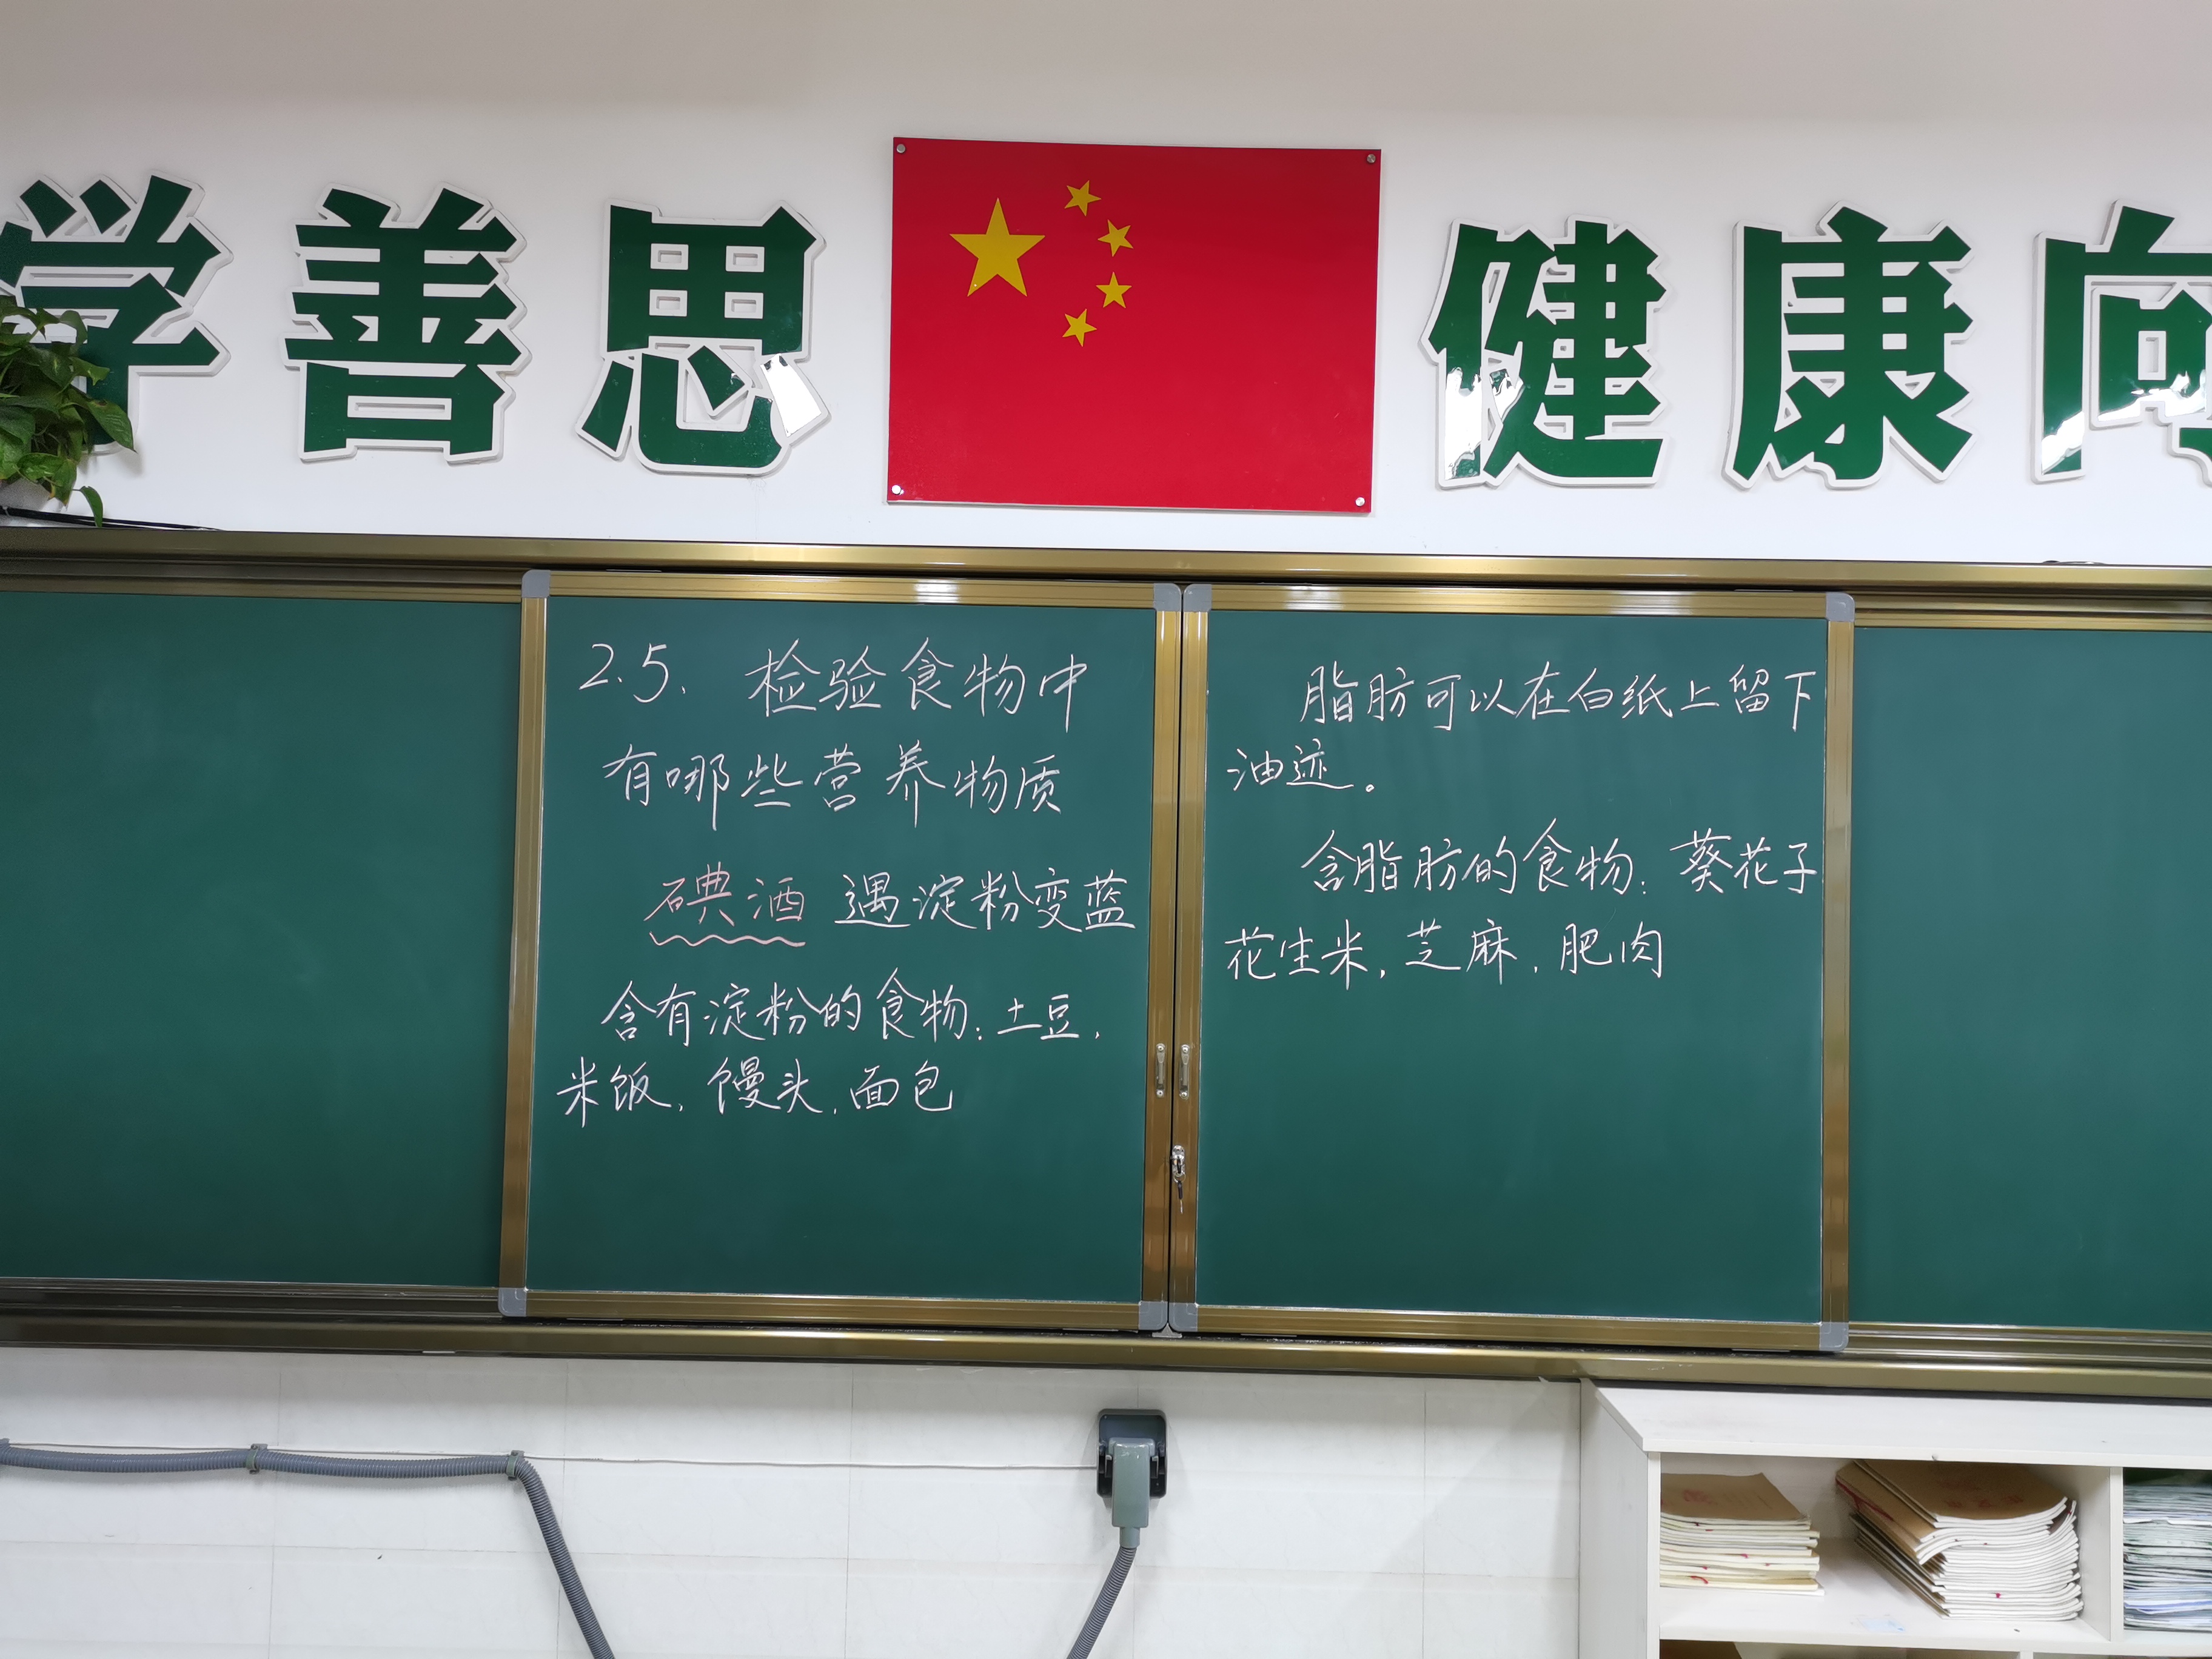 学善思 健康向
2.5. 检验食物中
有哪些营养物质
碘酒 遇淀粉变蓝
含有淀粉的食物: 土豆,
米饭, 馒头, 面包
脂肪可以在白纸上留下
油迹。
含脂肪的食物: 葵花子
花生米, 芝麻, 肥肉